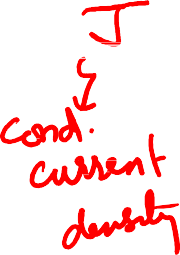 J
cond.
current
density